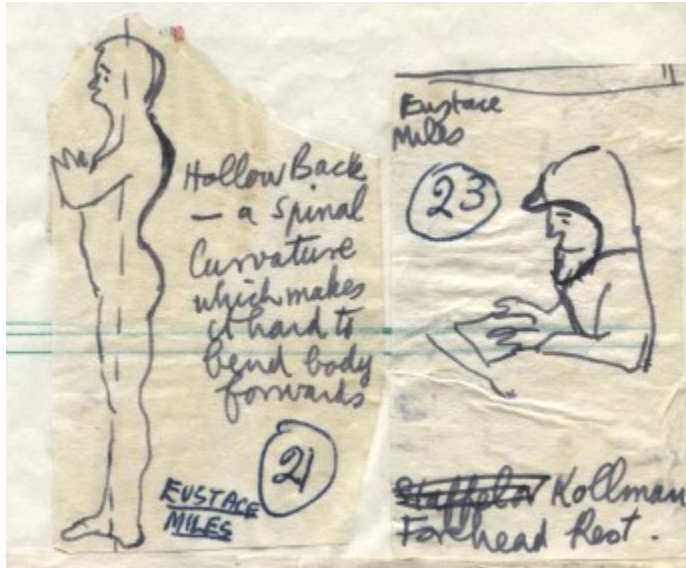 Hollow Back
— a Spinal
Curvature
which makes
it hard to
bend body
forwards
21
EUSTACE
MILES
Eustace
Miles
23
Kollman
Forehead Rest.